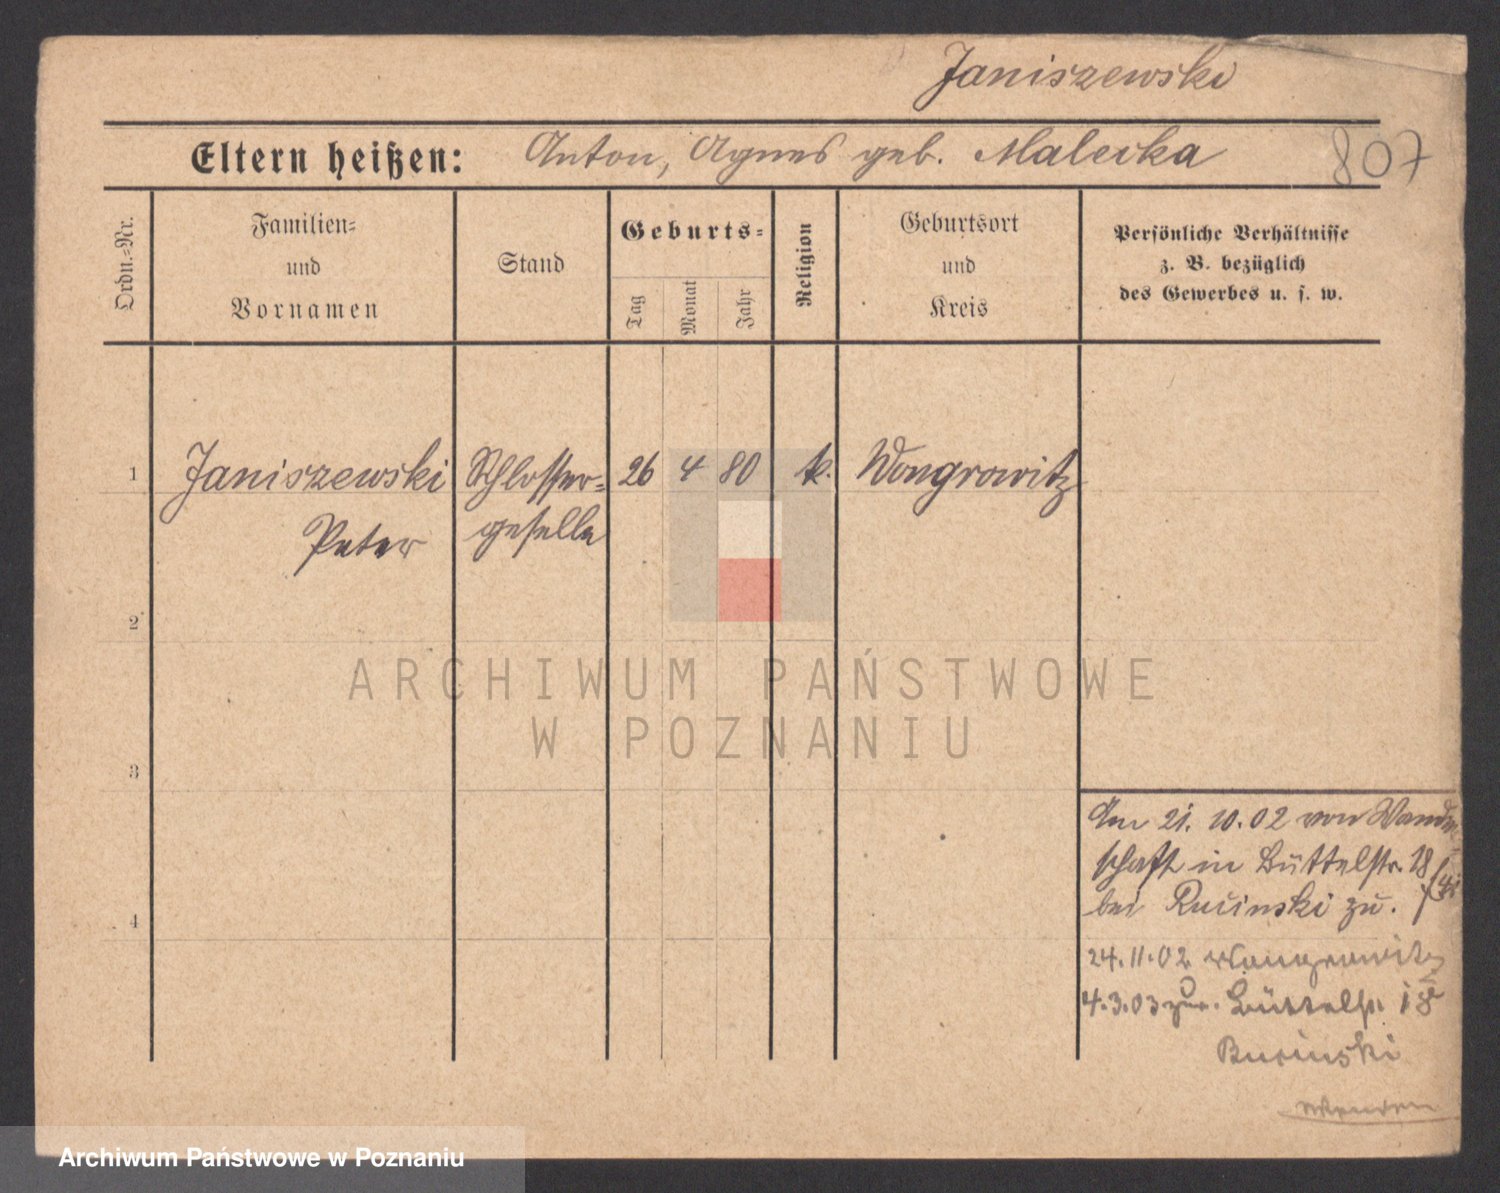 Janiszewski
Eltern heißen: Anton, Agnes geb. Malecka
807
Ordn.=Nr.
Familien=
und
Vornamen
Stand
Geburts=
Tag
Monat
Jahr
Religion
Geburtsort
und
Kreis
Persönliche Verhältnisse
z. B. bezüglich
des Gewerbes u. s. w.
1 Janiszewski Schlosser= 26 4 80 k. Wongrowitz
Peter geselle
2
3
4
Am 21. 10. 02 von Wander
schaft in Büttelstr. 18
bei Rucinski zu.
24. 11. 02 Wongrowitz
4. 3. 03 zur. Büttelstr. 18
Rucinski
Wenden
ARCHIWUM PAŃSTWOWE
W POZNANIU
Archiwum Państwowe w Poznaniu